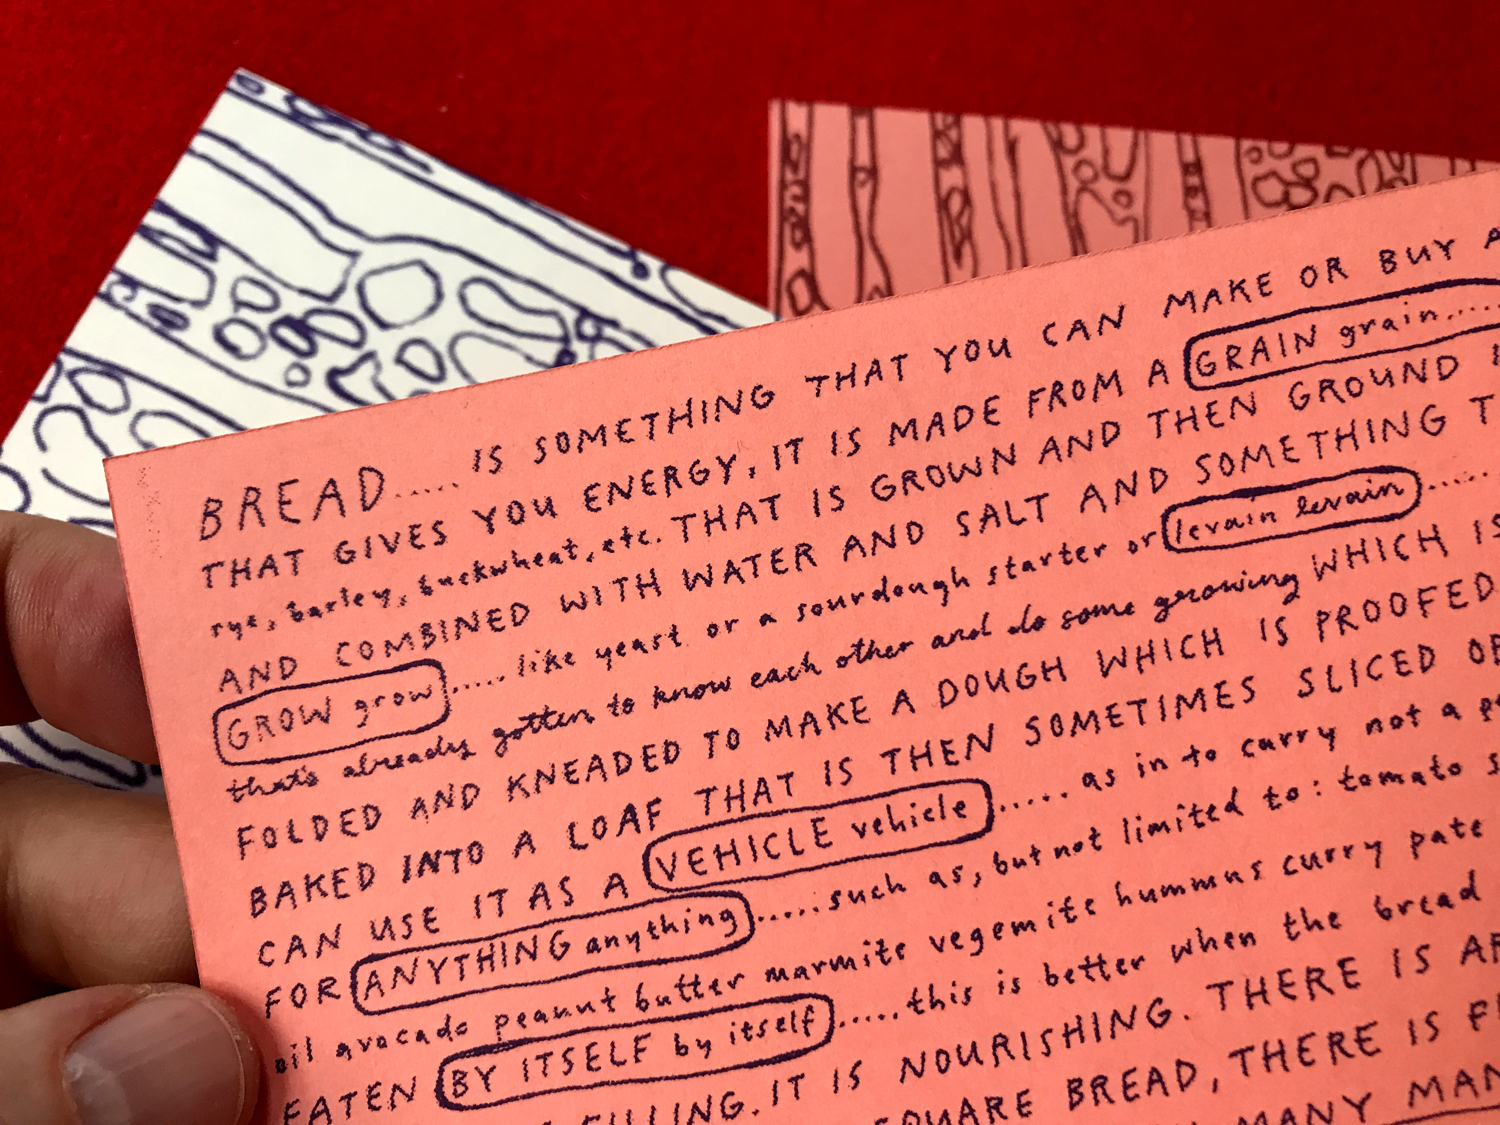 BREAD..... IS SOMETHING THAT YOU CAN MAKE OR BUY
THAT GIVES YOU ENERGY, IT IS MADE FROM A GRAIN grain.....
rye, barley, buckwheat, etc. THAT IS GROWN AND THEN GROUND
AND COMBINED WITH WATER AND SALT AND SOMETHING
GROW grow..... like yeast or a sourdough starter or levain levain.....
that's already gotten to know each other and do some growing WHICH IS
FOLDED AND KNEADED TO MAKE A DOUGH WHICH IS PROOFED
BAKED INTO A LOAF THAT IS THEN SOMETIMES SLICED
CAN USE IT AS A VEHICLE vehicle..... as in to carry not a
FOR ANYTHING anything..... such as, but not limited to: tomato
oil avocado peanut butter marmite vegemite hummus curry pate
EATEN BY ITSELF by itself..... this is better when the bread
FILLING. IT IS NOURISHING. THERE IS
SQUARE BREAD, THERE IS
MANY